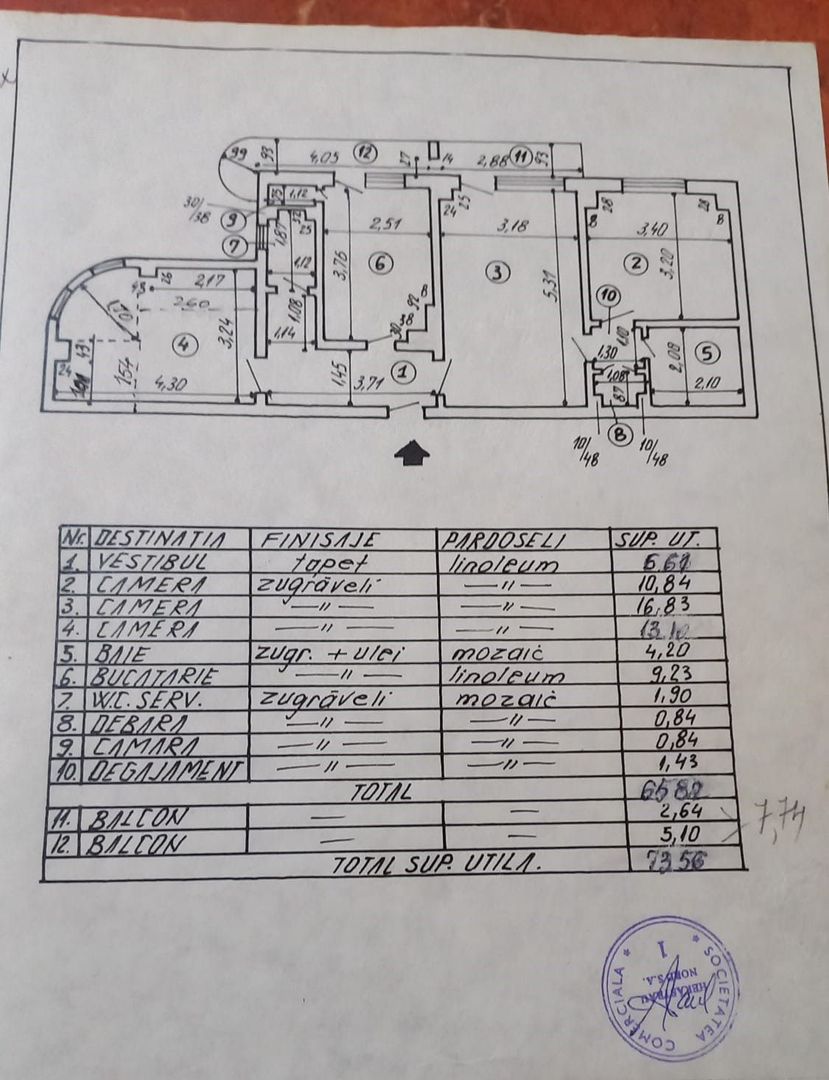 99
93
4,05
12
27
14
2,88
11
93
30/38
9
25
1,12
7
1,87
32
25
1,12
1,08
1,14
2,51
3,76
6
8
92
38
30
24
25
3,18
3
5,31
28
8
28
8
3,40
2
3,20
26
45
2,17
2,60
4
3,24
24
43
154
4,30
1,45
3,71
1
10
1,10
1,30
1,08
87
8
10/48
10/48
2,08
5
2,10
Nr. DESTINATIA FINISAJE PARDOSELI SUP. UT.
1. VESTIBUL tapet linoleum
2. CAMERA zugrăveli —〃— 10,84
3. CAMERA —〃— —〃— 16,83
4. CAMERA —〃— —〃— 13,10
5. BAIE zugr. + ulei mozaic 4,20
6. BUCATARIE —〃— linoleum 9,23
7. W.C. SERV. zugrăveli mozaic 1,90
8. DEBARA —〃— —〃— 0,84
9. CAMARA —〃— —〃— 0,84
10. DEGAJAMENT —〃— —〃— 1,43
TOTAL
11. BALCON — — 2,64
12. BALCON — — 5,10
7,74
TOTAL SUP. UTILA. 7356
* SOCIETATEA * COMERCIALA
1
HERASTRAU
NORD S.A.